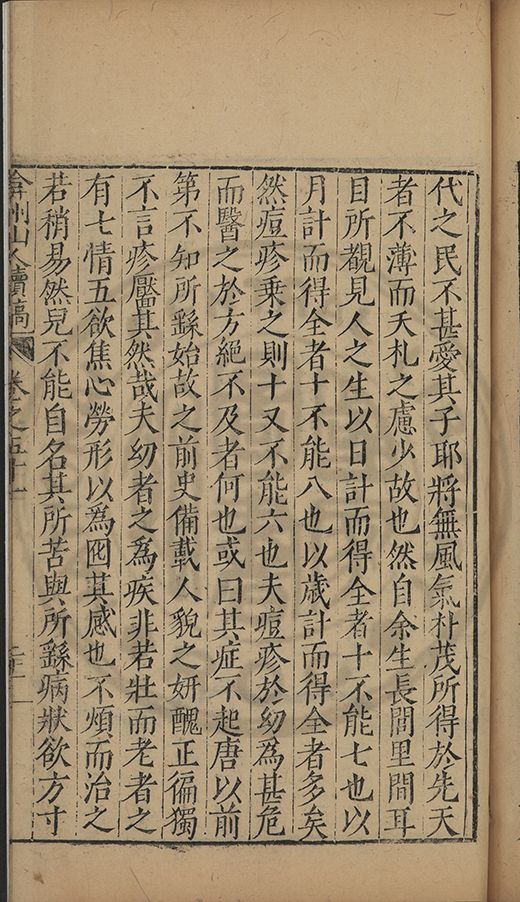 代之民不甚愛其子耶將無風氣朴茂所得於先天
者不薄而夭札之慮少故也然自余生長閭里間耳
目所覩見人之生以日計而得全者十不能七也以
月計而得全者十不能八也以歲計而得全者多矣
然痘疹乗之則十又不能六也夫痘疹於幼為甚危
而醫之於方絕不及者何也或曰其症不起唐以前
第不知所繇始故之前史備載人貌之妍醜正徧獨
不言疹靨其然哉夫幼者之為疾非若壯而老者之
有七情五欲焦心勞形以為囮其感也不煩而治之
若稍易然兒不能自名其所苦與所繇病狀欲方寸
弇州山人續稿 卷之五十一